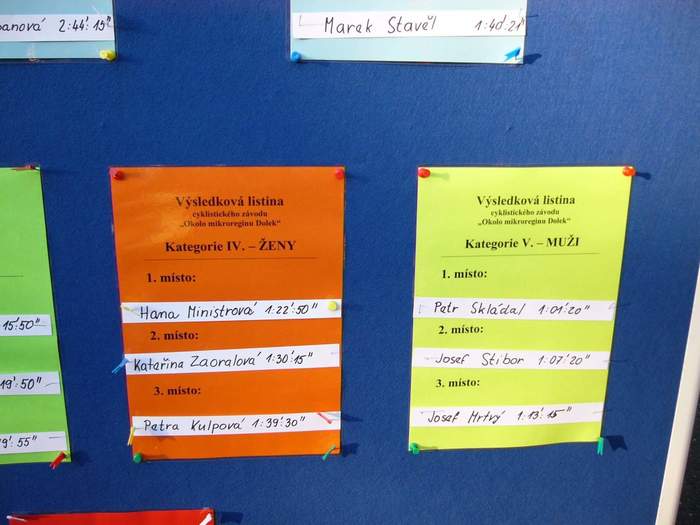 2:44'15"
Marek Stavěl 1:40'21"
15'50"
19'50"
19'55"
Výsledková listina
cyklistického závodu
„Okolo mikroreginu Dolek“
Kategorie IV. – ŽENY
1. místo:
Hana Ministrová 1:22'50"
2. místo:
Kateřina Zaoralová 1:30'15"
3. místo:
Petra Kulpová 1:39'30"
Výsledková listina
cyklistického závodu
„Okolo mikroreginu Dolek“
Kategorie V. – MUŽI
1. místo:
Petr Skládal 1:01'20"
2. místo:
Josef Stibor 1:07'20"
3. místo:
Josef Mrtvý 1:13'15"